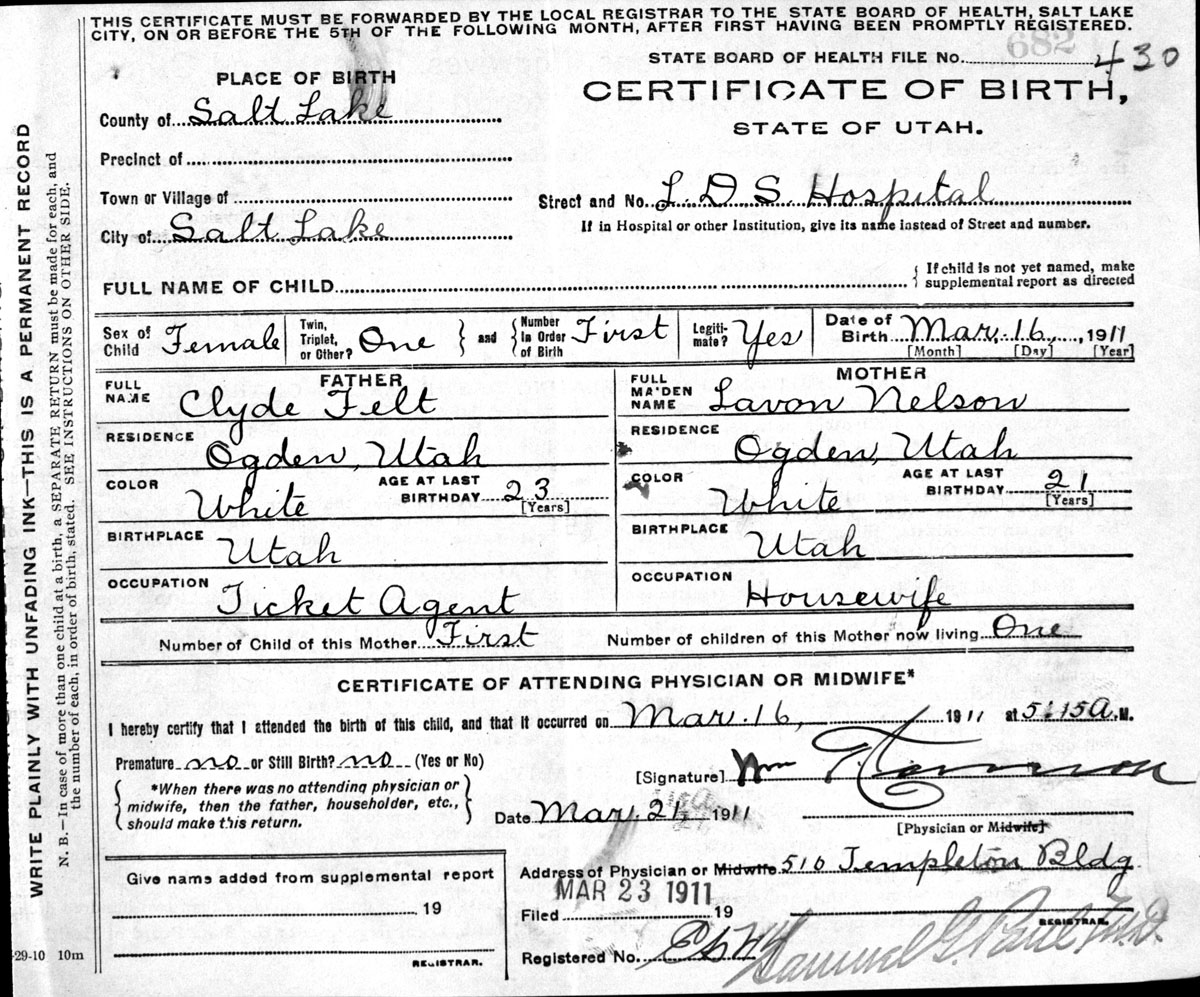 THIS CERTIFICATE MUST BE FORWARDED BY THE LOCAL REGISTRAR TO THE STATE BOARD OF HEALTH, SALT LAKE
CITY, ON OR BEFORE THE 5TH OF THE FOLLOWING MONTH, AFTER FIRST HAVING BEEN PROMPTLY REGISTERED.
682
STATE BOARD OF HEALTH FILE No. 430
PLACE OF BIRTH
CERTIFICATE OF BIRTH,
STATE OF UTAH.
County of Salt Lake
Precinct of
Town or Village of
Street and No. L D S Hospital
City of Salt Lake
If in Hospital or other Institution, give its name instead of Street and number.
FULL NAME OF CHILD
If child is not yet named, make
supplemental report as directed
Sex of Child Female
Twin, Triplet, or Other? One
and
Number In Order of Birth First
Legiti-mate? Yes
Date of Birth Mar. 16, 1911
[Month] [Day] [Year]
FATHER
FULL NAME Clyde Felt
MOTHER
FULL MAIDEN NAME Lavon Nelson
RESIDENCE Ogden, Utah
RESIDENCE Ogden, Utah
COLOR White
AGE AT LAST BIRTHDAY 23 [Years]
COLOR White
AGE AT LAST BIRTHDAY 21 [Years]
BIRTHPLACE Utah
BIRTHPLACE Utah
OCCUPATION Ticket Agent
OCCUPATION Housewife
Number of Child of this Mother First
Number of children of this Mother now living One
CERTIFICATE OF ATTENDING PHYSICIAN OR MIDWIFE*
I hereby certify that I attended the birth of this child, and that it occurred on Mar. 16, 1911 at 5:15 A. M.
Premature no or Still Birth? no (Yes or No)
[Signature] Wm
*When there was no attending physician or
midwife, then the father, householder, etc.,
should make this return.
Date Mar. 21 1911
[Physician or Midwife]
Address of Physician or Midwife 510 Templeton Bldg.
Give name added from supplemental report
19
REGISTRAR.
MAR 23 1911
Filed 19
REGISTRAR.
Registered No.
Samuel G. Paul M.D.
29-10 10m
WRITE PLAINLY WITH UNFADING INK—THIS IS A PERMANENT RECORD
N. B.—In case of more than one child at a birth, a SEPARATE RETURN must be made for each, and
the number of each, in order of birth, stated. SEE INSTRUCTIONS ON OTHER SIDE.